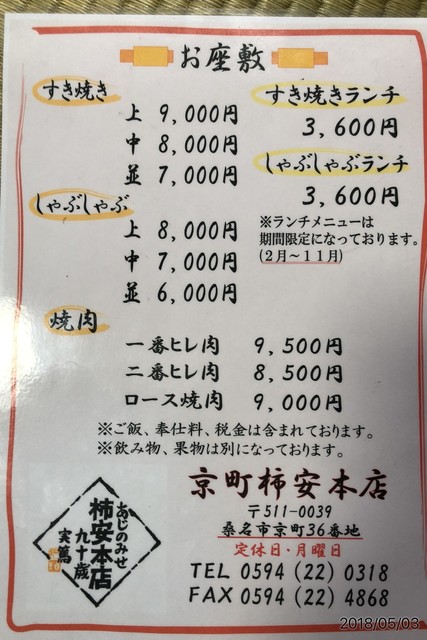 お座敷
すき焼き
上 9,000円
中 8,000円
並 7,000円
しゃぶしゃぶ
上 8,000円
中 7,000円
並 6,000円
すき焼きランチ
3,600円
しゃぶしゃぶランチ
3,600円
※ランチメニューは
期間限定になっております。
(2月～11月)
焼肉
一番ヒレ肉 9,500円
二番ヒレ肉 8,500円
ロース焼肉 9,000円
※ご飯、奉仕料、税金は含まれております。
※飲み物、果物は別になっております。
あじのみせ
柿安本店
九十歳
実篤
京町柿安本店
〒511-0039
桑名市京町36番地
定休日・月曜日
TEL 0594 (22) 0318
FAX 0594 (22) 4868
2018/05/03